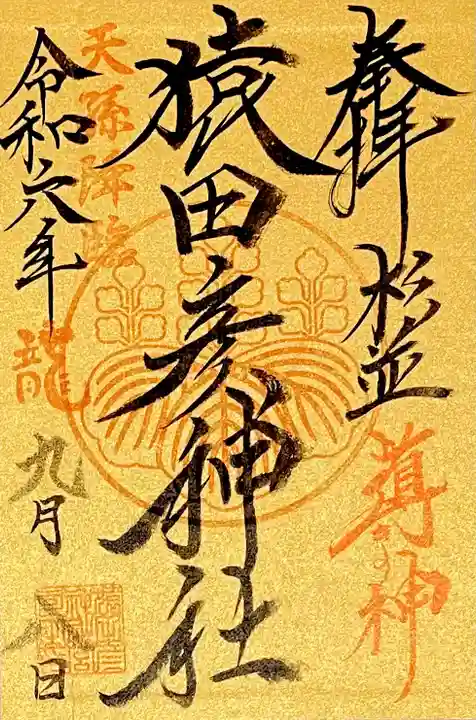 奉拝 杉並
導きの神
猿田彦神社
天孫降臨
龍
令和六年
九月 八日